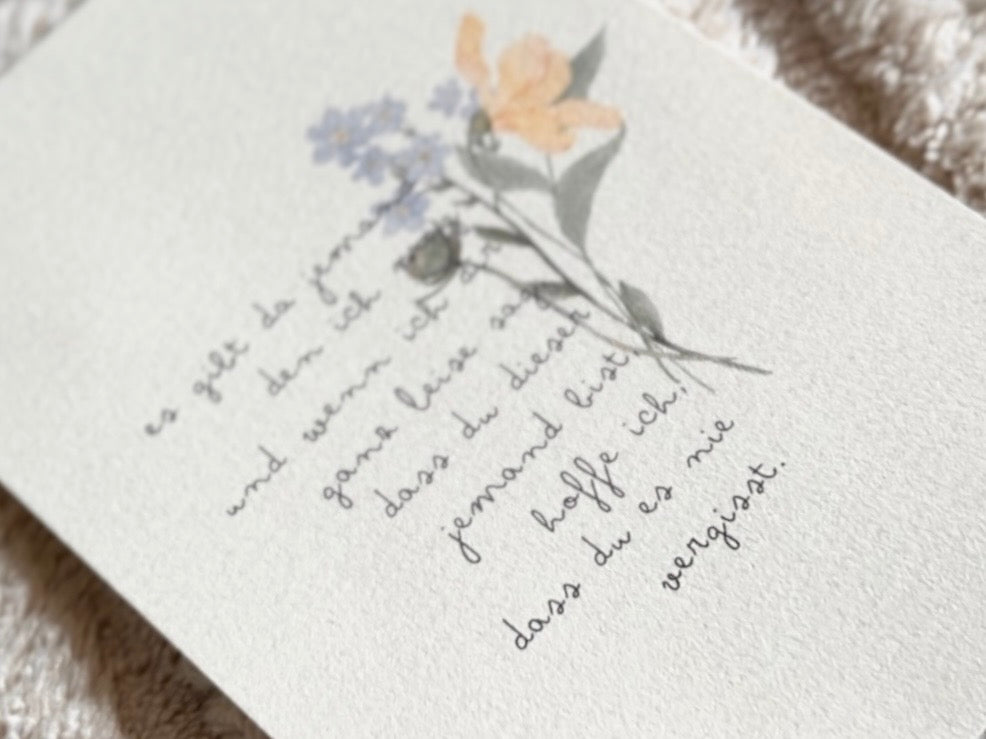 es gibt da
den ich
und wenn ich dir
ganz leise sag
dass du dieser
jemand bist,
hoffe ich,
dass du es nie
vergisst.